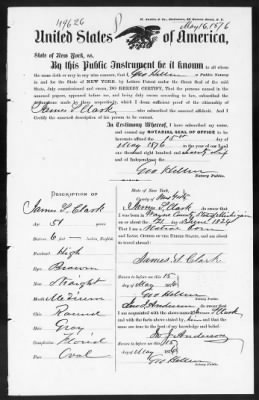 119626
May 16, 1876
United States of America.
State of New York, ss.
By this Public Instrument be it known to all whom
the same doth or may in any wise concern, that I, Geo Hillen a Public Notary
in and for the State of NEW YORK, by Letters Patent under the Great Seal of the said
State, duly commissioned and sworn, DO HEREBY CERTIFY, that the persons named in the
annexed papers, appeared before me, and being duly sworn according to law, subscribed the
depositions made by them respectively, which I deem sufficient proof of the citizenship of
James S. Clark who executed the annexed affidavit. And I
Certify the annexed description of his person to be correct.
In Testimony Whereof, I have hereunto subscribed my name,
and caused my NOTARIAL SEAL OF OFFICE to be
hereunto affixed the 15th day of
May 1876 in the year of our Lord
one thousand eight hundred and seventy six and
of Independence the
Geo Hillen
Notary Public.
DESCRIPTION OF
James S. Clark
Age 51 years
Stature 6 feet inches, English
Forehead High
Eyes Brown
Nose Straight
Mouth Medium
Chin Round
Hair Gray
Complexion Florid
Face Oval
State of New York,
County of New York
I, James S. Clark do swear that
I was born in Wayne County State of Michigan
on or about the 21 day of April 1824
that I am a Native Born
and Loyal Citizen of the United States, and about
to travel abroad:
James S. Clark
Sworn to before me this 15
day of May 1876
Geo Hillen
Notary Public.
I, Anderson do swear that
I am acquainted with the above named James S. Clark
and with the facts above stated by him and that the
same are true to the best of my knowledge and belief.
Anderson
Sworn to before me this 15
day of May 1876
Geo Hillen
Notary Public.